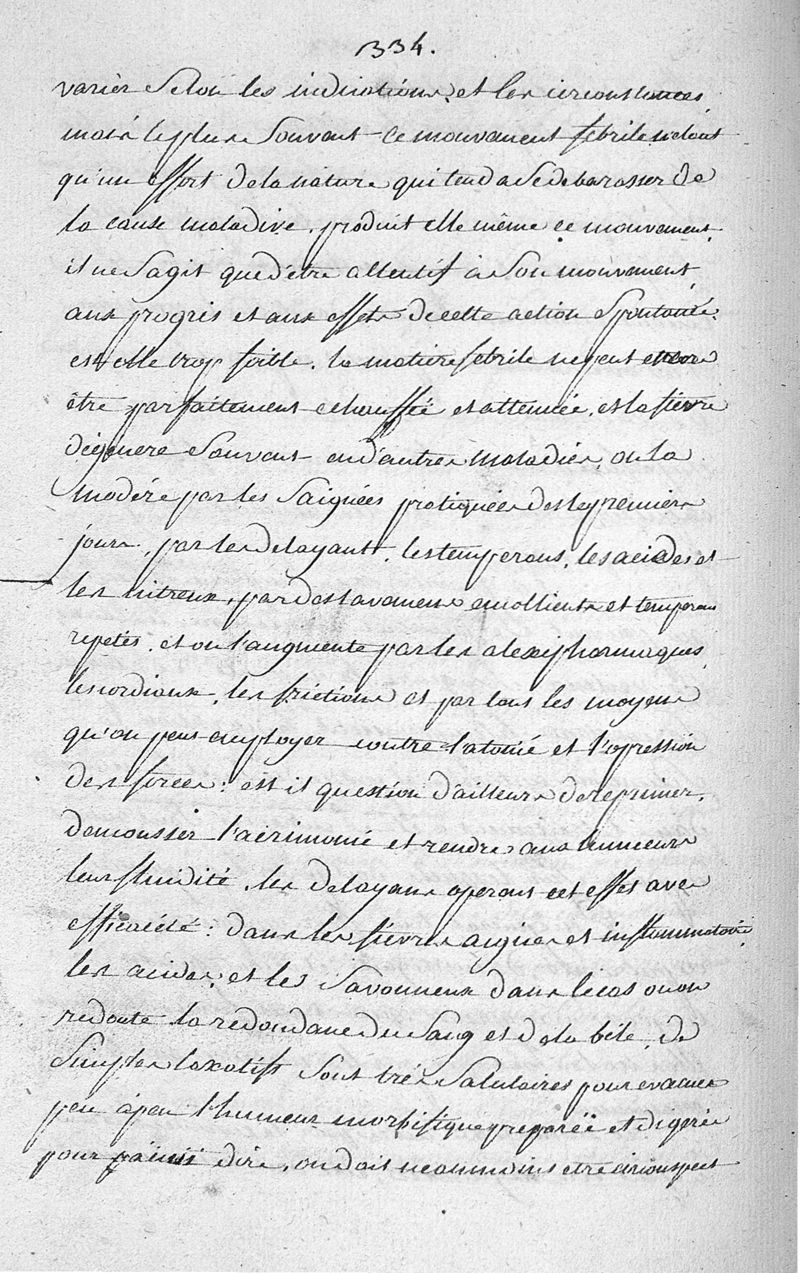 334.
varier Selon les indications, et les circonstances,
mais le plus Souvent ce mouvement febrile n'etant
qu'un effort de la nature qui tend a Se debarasser de
la cause maladive, produit elle même ce mouvement,
il ne Sagit que d'être attentif à Son mouvement,
aux progrès et aux effets de cette action Spontanée.
est elle trop foible, la matiere febrile ne peut encore
être parfaitement echouffée et attenuée, et la fievre
dégenere Souvent en d'autres maladies, on la
modére par les Saignées pratiquées des les premiers
jours, par les delayant, les temperans, les acides et
les nitreux, par des lavemens emollients et temperans
repetés, et on l'augmente par les alexipharmaques,
les cordiaux, les frictions et par tous les moyens
qu'on peut employer contre l'atonie et l'opression
des forces: est il question d'ailleurs de reprimer,
demousser l'acrimonie et rendre aux humeurs
leur fluidité, les delayans operont cet effet avec
efficacité: dans les fievres aigues et inflammatoires
les acides, et les Savonneux dans le cas ou on
redoute la redondance du Sang et de la bile, de
Simples laxatifs Sont très Salutaires pour evacuer
peu à peu l'humeur morbifique preparée et digerée
pour painsi dire, on doit neanmoins etre circonspect